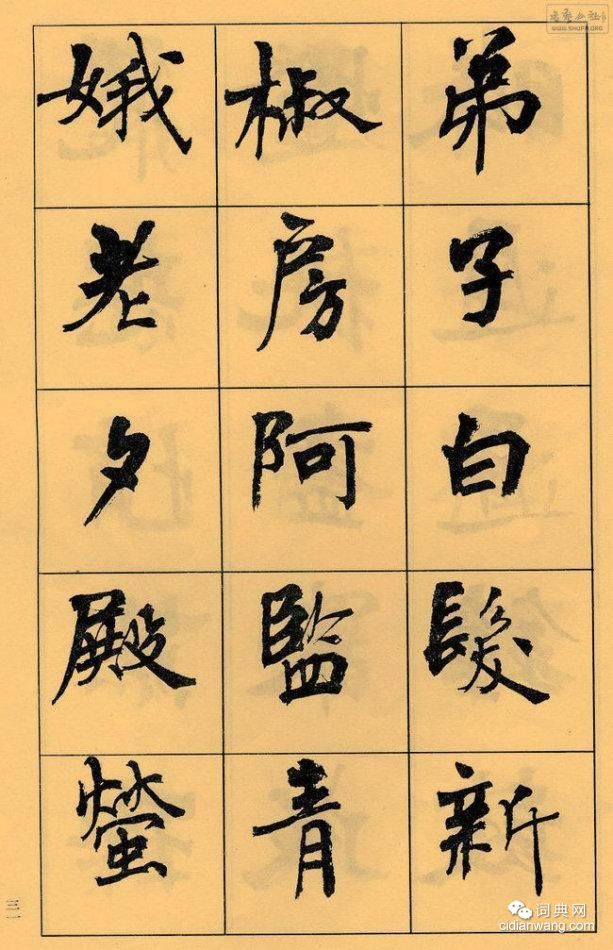 弟子白髮新
椒房阿監青
娥老夕殿螢
三一
书法公社
WWW.SHUFA.ORG
词典网
cidianwang.com